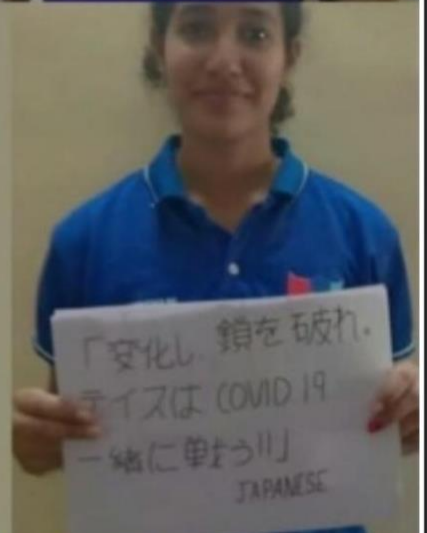 「変化し 鎖を破れ。
テイスは COVID 19
一緒に単とう!!」
JAPANESE